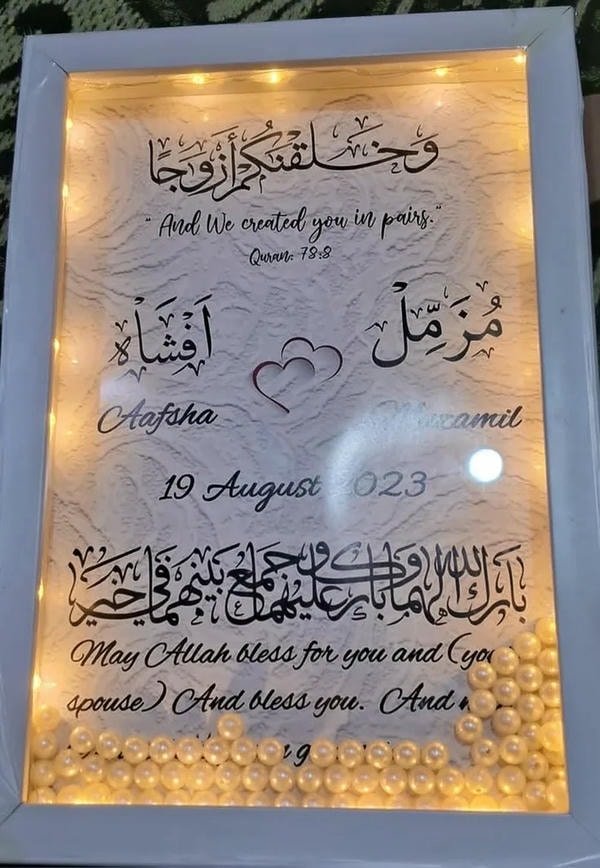 وَخَلَقنَكُمْ أَزوَجًا
"And We created you in pairs."
Quran: 78:8
مُزَمِّلْ اَفْشَاْه
Aafsha Muzamil
19 August 2023
بارك الله لهما وبارك عليهما وجمع بينهما في خير
May Allah bless for you and
spouse) And bless you. And